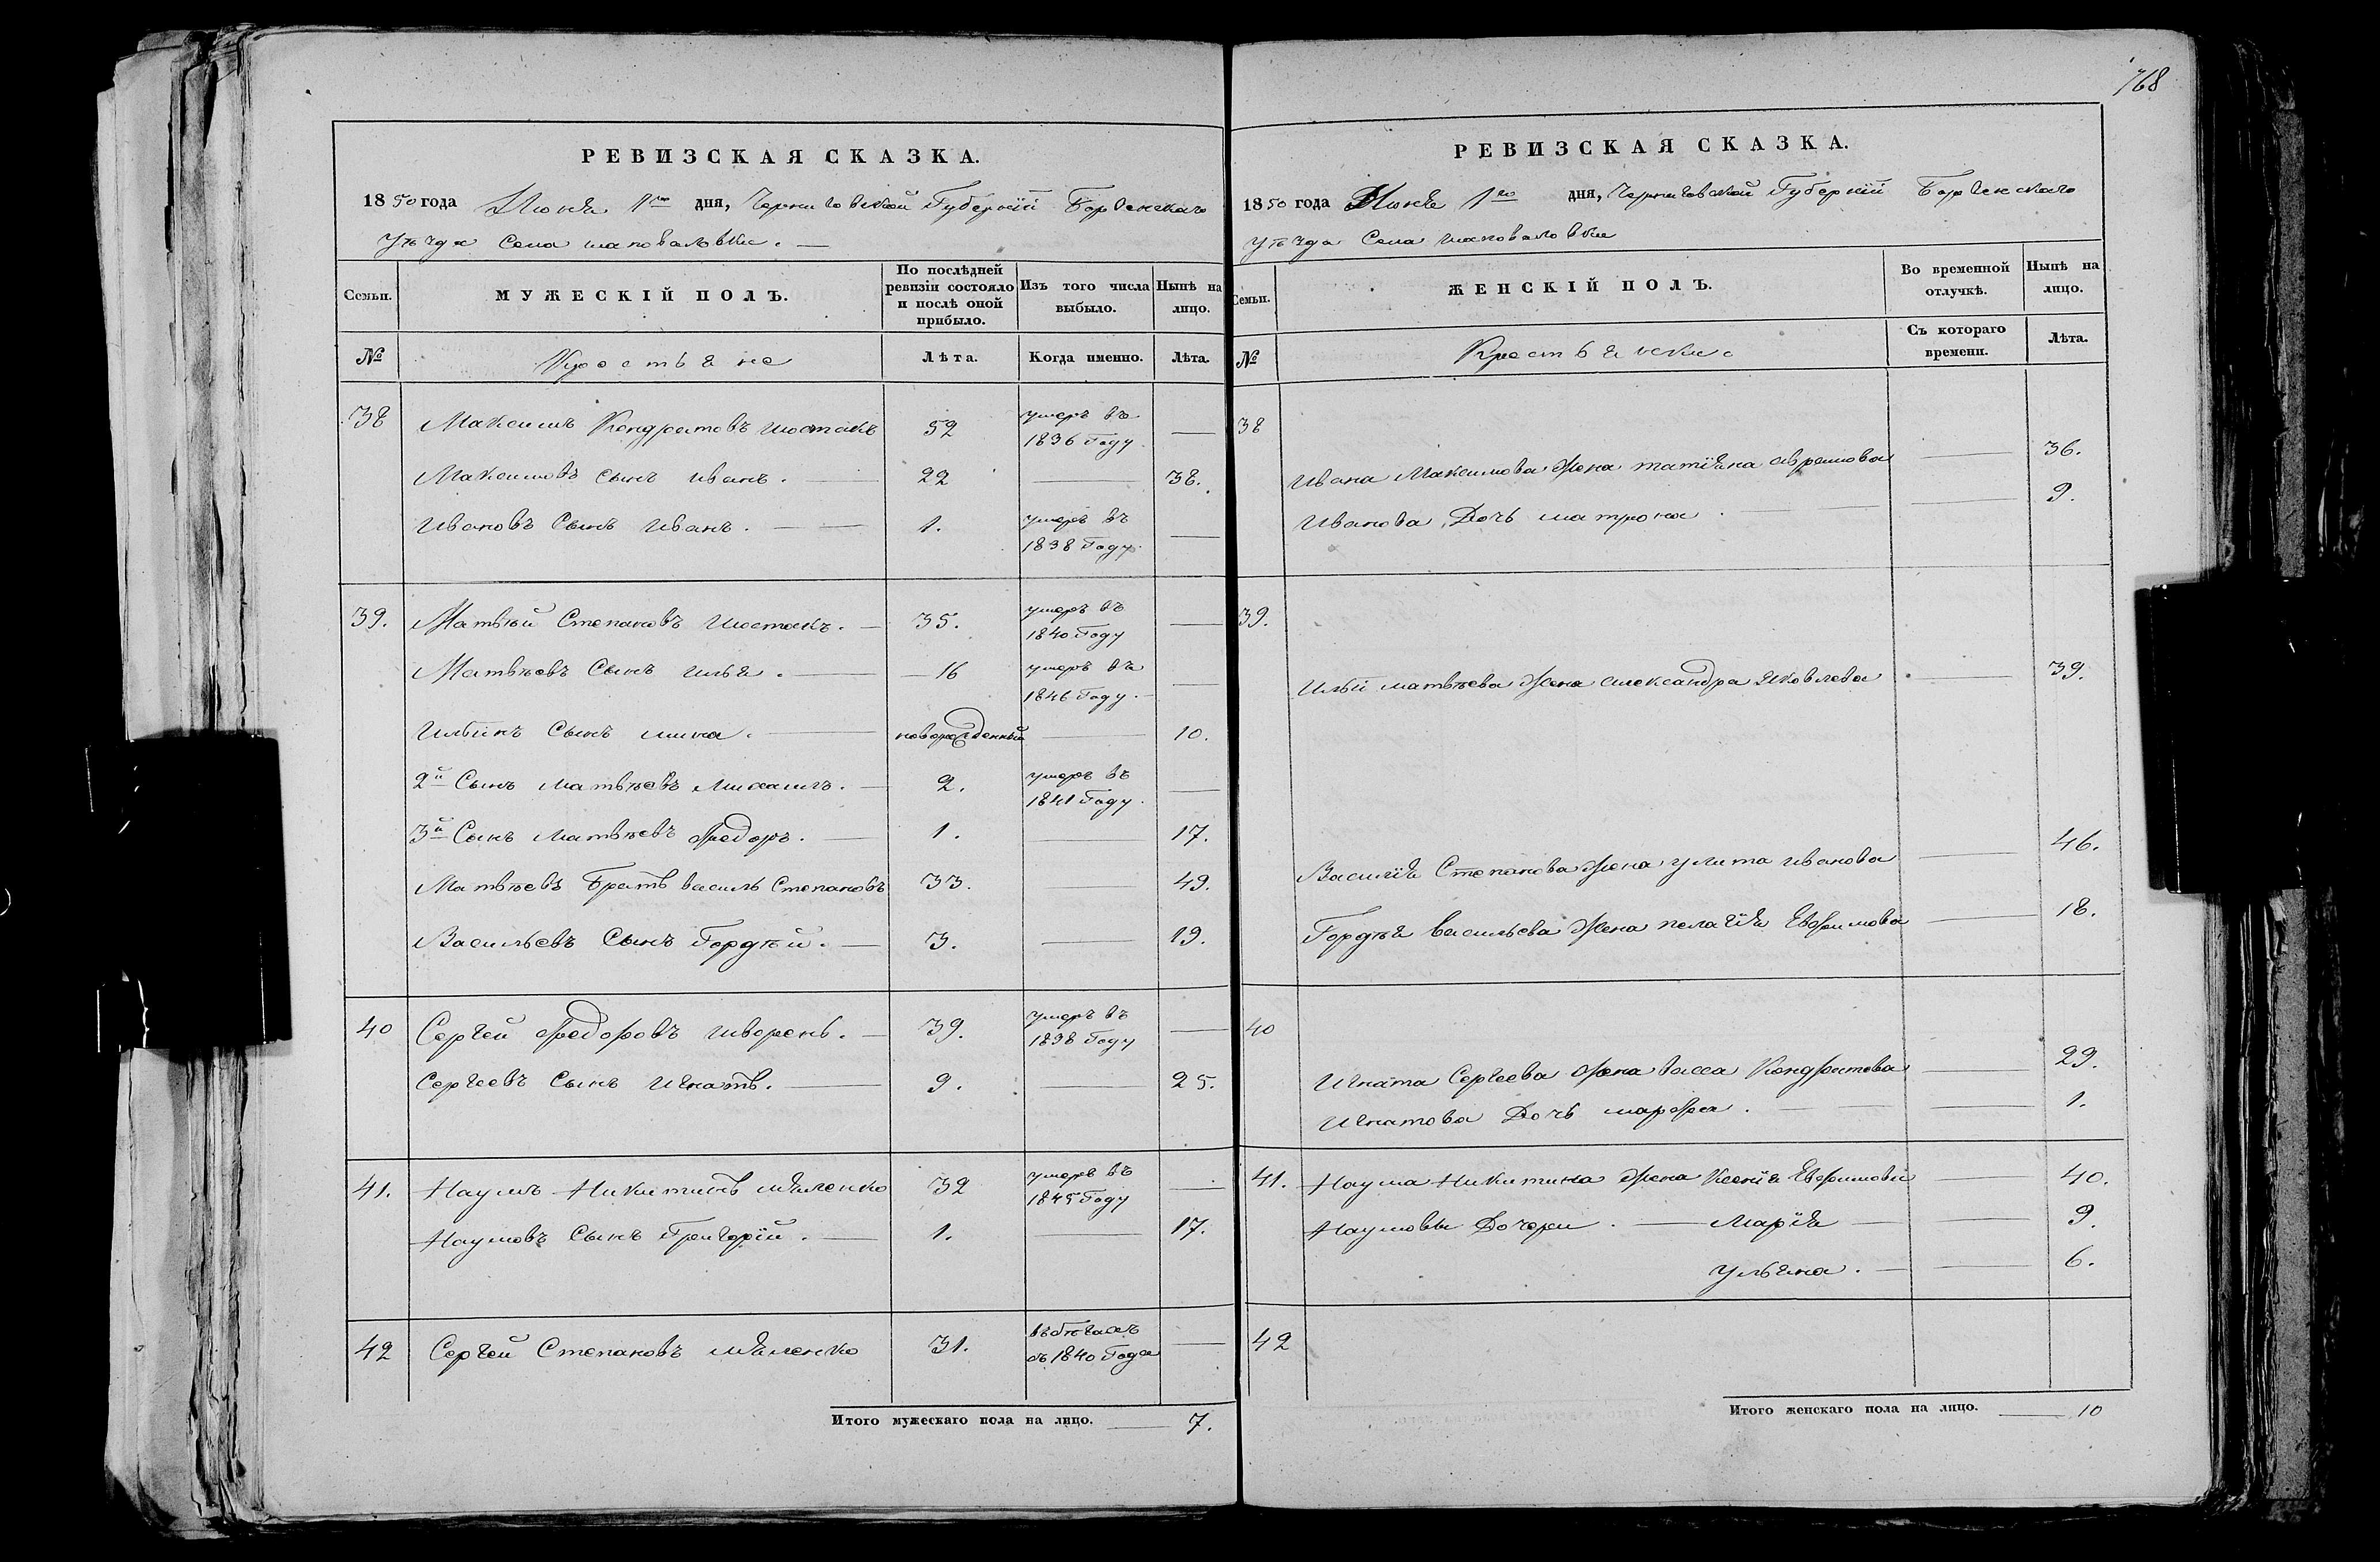 РЕВИЗСКАЯ СКАЗКА.
1850 года Июня 1го дня, Черниговской Губерніи Борзенскаго
уѣзда Села шаповаловки. —
Семьи. МУЖЕСКІЙ ПОЛЪ. По послѣдней ревизіи состояло и послѣ оной прибыло. Изъ того числа выбыло. Нынѣ на лицо.
№ Крестьяне Лѣта. Когда именно. Лѣта.
38 Максимъ Кондратовъ шостакъ 52 умеръ въ 1836 Году —
Максимовъ Сынъ иванъ. — 22 — 38.
Ивановъ Сынъ иванъ. — 1. умеръ въ 1838 Году. —
39. Матвѣй Степановъ шостакъ. — 35. умеръ въ 1840 Году —
Матвѣевъ Сынъ илья. — 16 умеръ въ 1846 Году. —
Ильинъ Сынъ мина. — новорожденный — 10.
2й Сынъ матвѣевъ михаилъ. — 2. умеръ въ 1841 Году. —
3й Сынъ матвѣевъ Федоръ. — 1. — 17.
Матвѣевъ Братъ василь Степановъ 33. — 49.
Васильевъ Сынъ Гордѣй. — 3. — 19.
40 Сергей Федоровъ шворень. — 39. умеръ въ 1838 Году —
Сергеевъ Сынъ игнатъ. — 9. — 25.
41. Наумъ Никитинъ 32 умеръ въ 1845 Году —
Наумовъ Сынъ Григорій. — 1. — 17.
42 Сергей Степановъ 31. въ бѣгахъ съ 1840 Года —
Итого мужескаго пола на лицо. — 7.
768
РЕВИЗСКАЯ СКАЗКА.
1850 года Июня 1го дня, Черниговской Губерніи Борзенскаго
уѣзда Села шаповаловки
Семьи. ЖЕНСКІЙ ПОЛЪ. Во временной отлучкѣ. Нынѣ на лицо.
№ Крестьянки. Съ котораго времени. Лѣта.
38
Ивана Максимова жена татіяна аврамова — 36.
Иванова Дочь матрона. — 9.
39.
Ильи матвѣева жена александра яковлева — 39.
Василія Степанова жена улита иванова — 46.
Гордѣя васильева жена пелагія Евфимова — 18.
40
Игната Сергеева жена васса Кондратова — 29.
Игнатова Дочь марфа. — 1.
41. Наума Никитина жена Ксенія Евфимова — 40.
Наумовы Дочери. — Марія — 9.
ульяна. — 6.
42
Итого женскаго пола на лицо. — 10